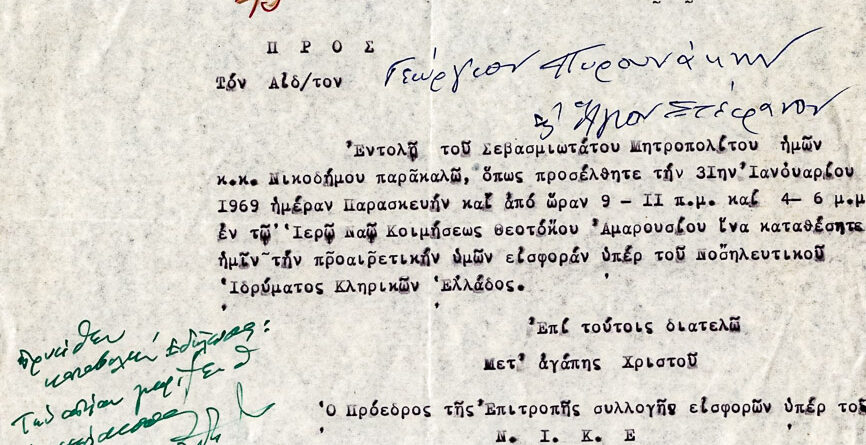 Π Ρ Ο Σ
Τόν Αἰδ/τον Γεώργιον Πυρουνάκην
Ἅγιον Στέφανον
Ἐντολῇ τοῦ Σεβασμιωτάτου Μητροπολίτου ἡμῶν
κ.κ. Νικοδήμου παρακαλῶ, ὅπως προσέλθητε τήν 3Ιην Ἰανόυαρίου
Ι969 ἡμέραν Παρασκευήν καί ἀπό ὥραν 9 - ΙΙ π.μ. καί 4- 6 μ.μ
ἐν τῷ Ἱερῷ Ναῷ Κοιμήσεως Θεοτόκου Ἀμαρουσίου ἵνα καταθέσητε
ἡμῖν τήν προαιρετικήν ὑμῶν εἰσφοράν ὑπέρ τοῦ Νοσηλευτικοῦ
Ἱδρύματος Κληρικῶν Ἑλλάδος.
Ἐπί τούτοις διατελῶ
Μετ' ἀγάπης Χριστοῦ
Ὁ Πρόεδρος τῆς Ἐπιτροπῆς συλλογῆς εἰσφορῶν ὑπέρ τοῦ
Ν. Ι. Κ. Ε